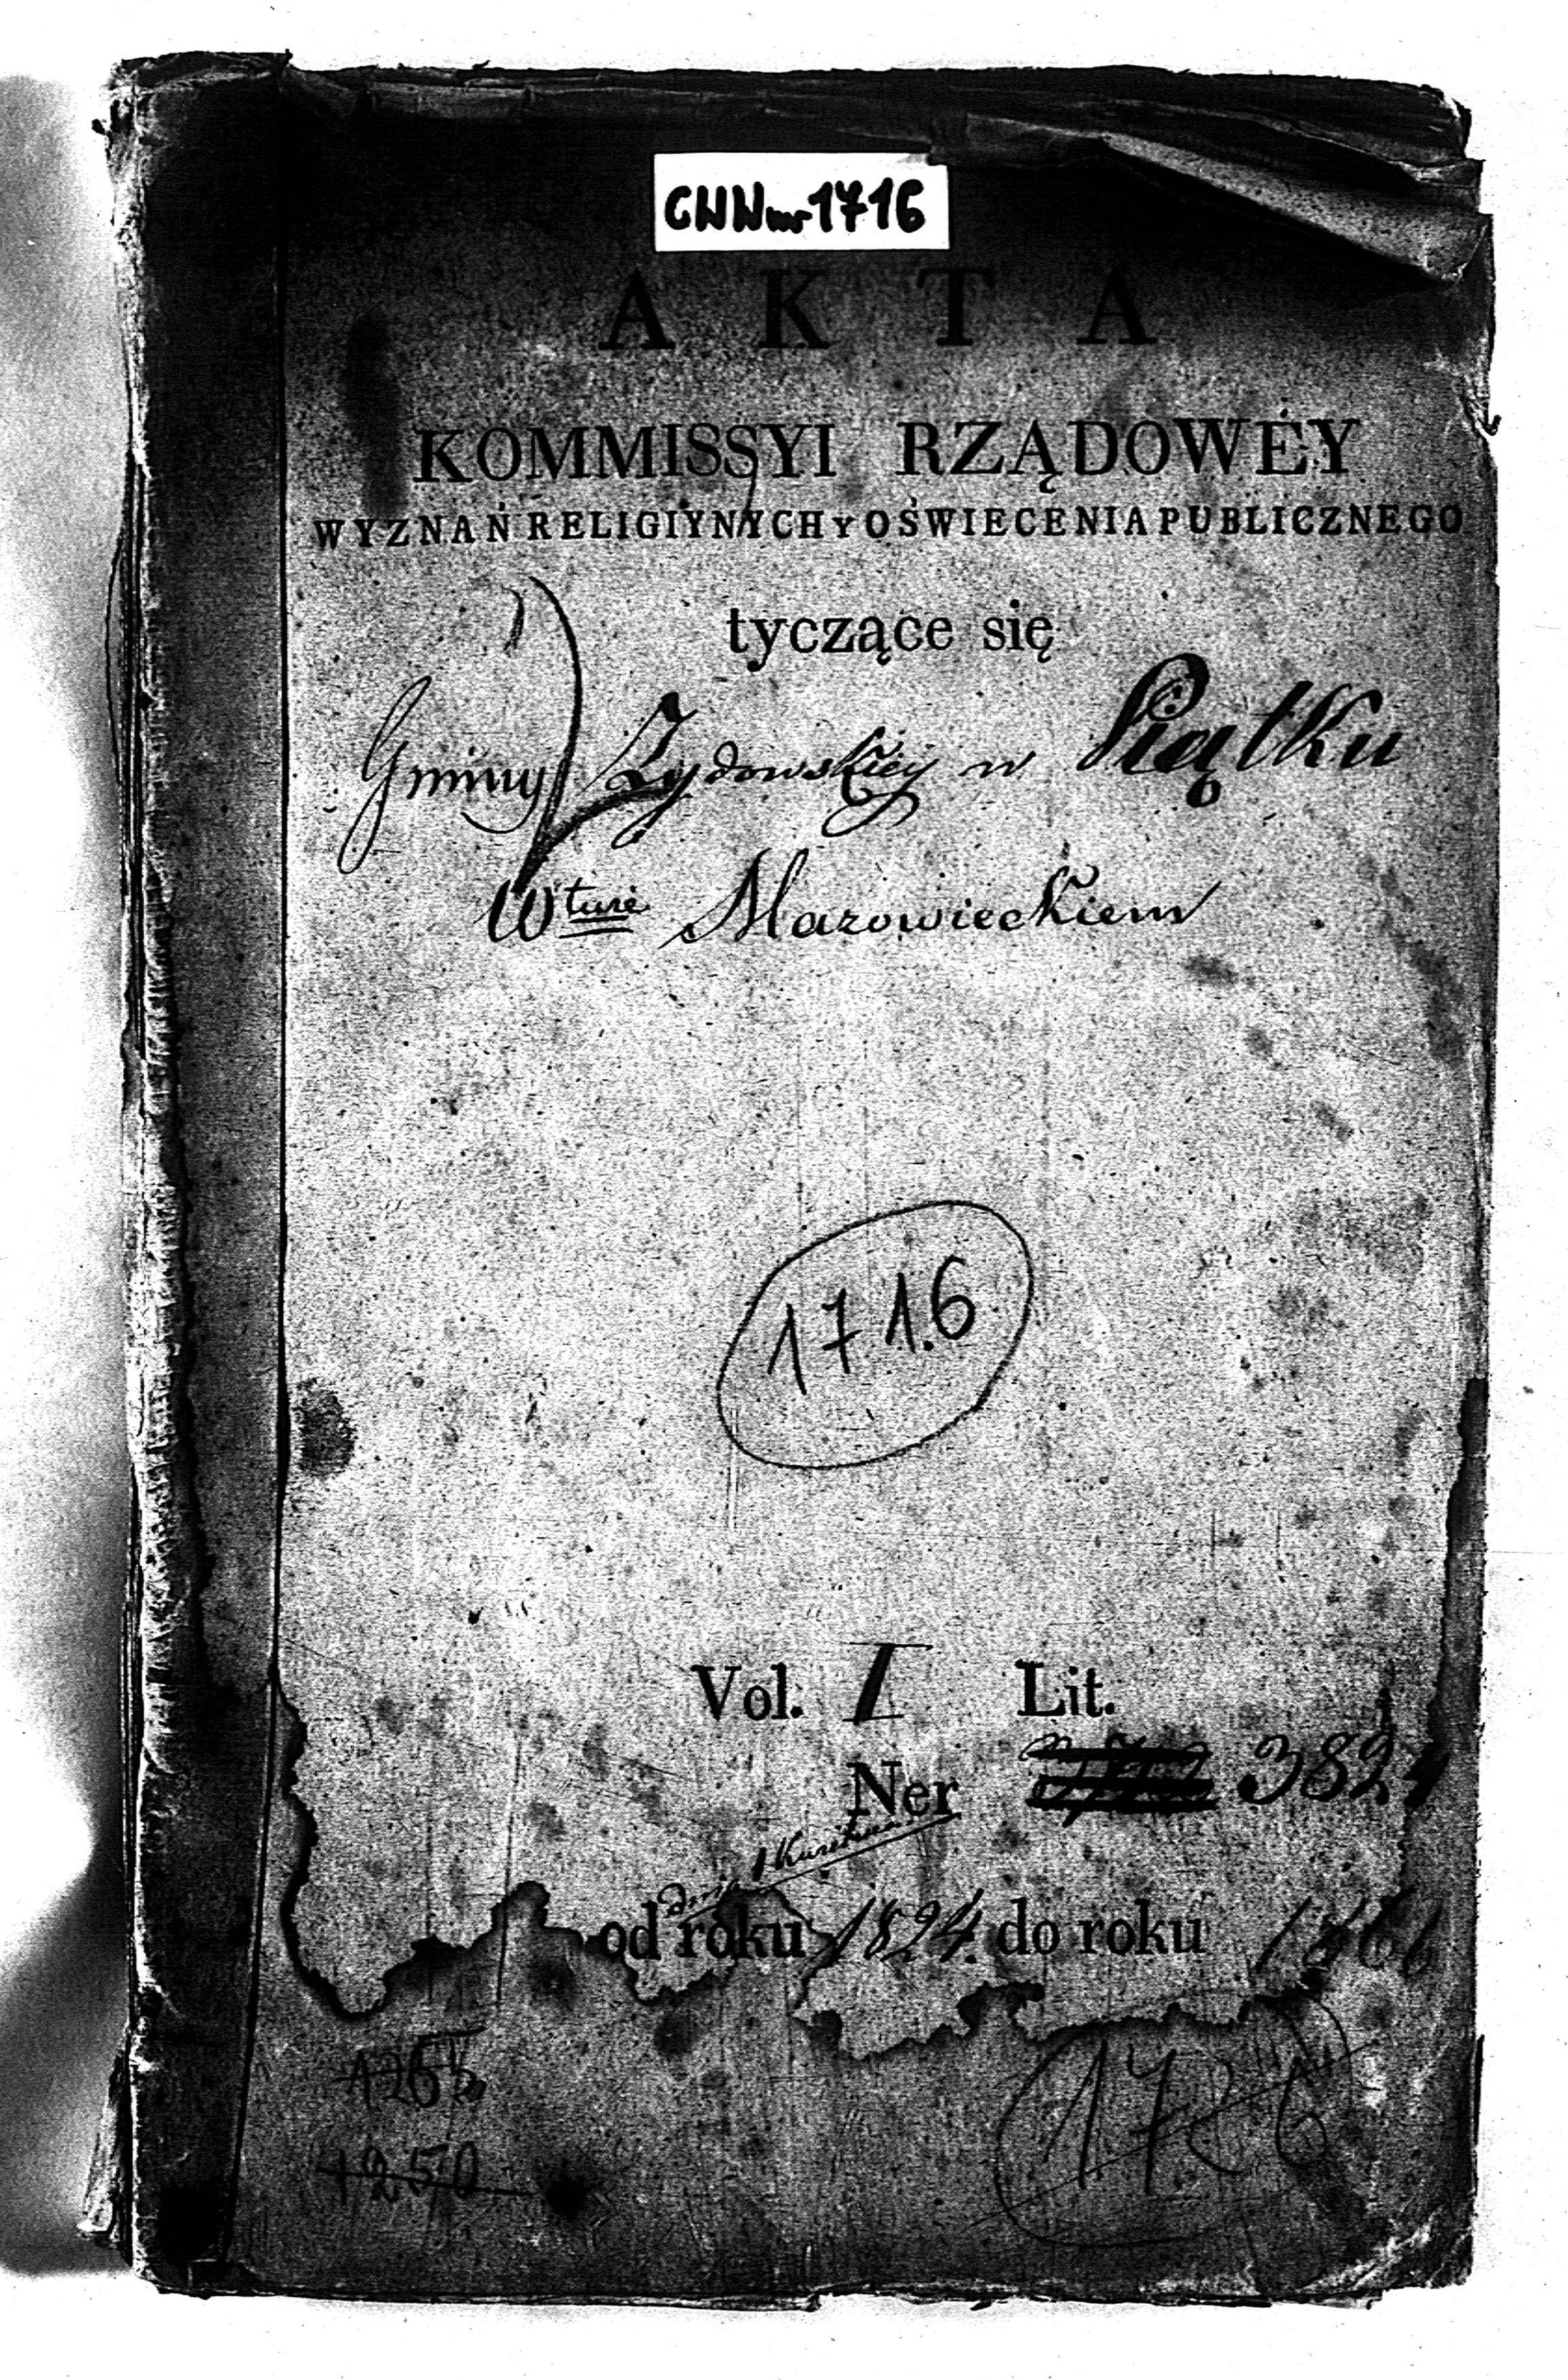 CWWnr 1716
AKTA
KOMMISSYI RZĄDOWEY
WYZNAŃ RELIGIYNYCH Y OŚWIECENIA PUBLICZNEGO
tyczące się
Gminy Żydowskiey w Piątku
Wtwie Mazowieckiem
1716
Vol. I Lit.
Ner 3821
od roku 1824. do roku 1866
1265
1250